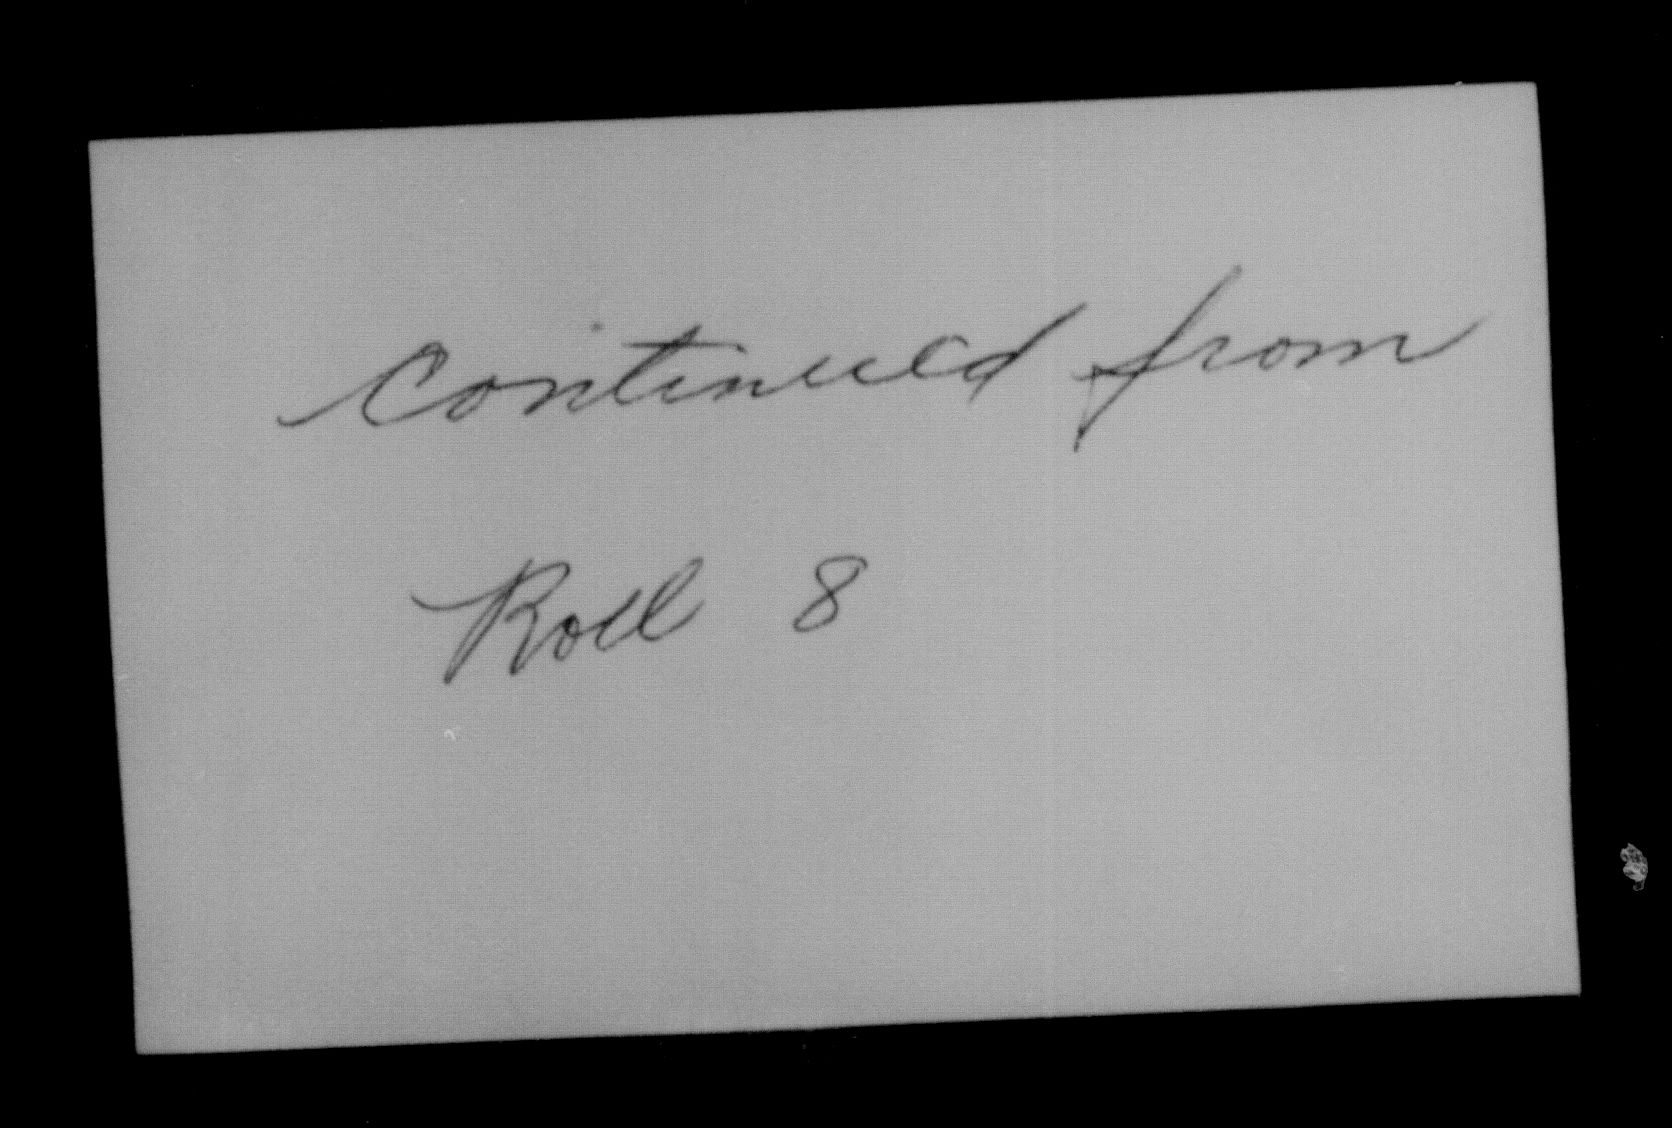 Continued from
Roll 8